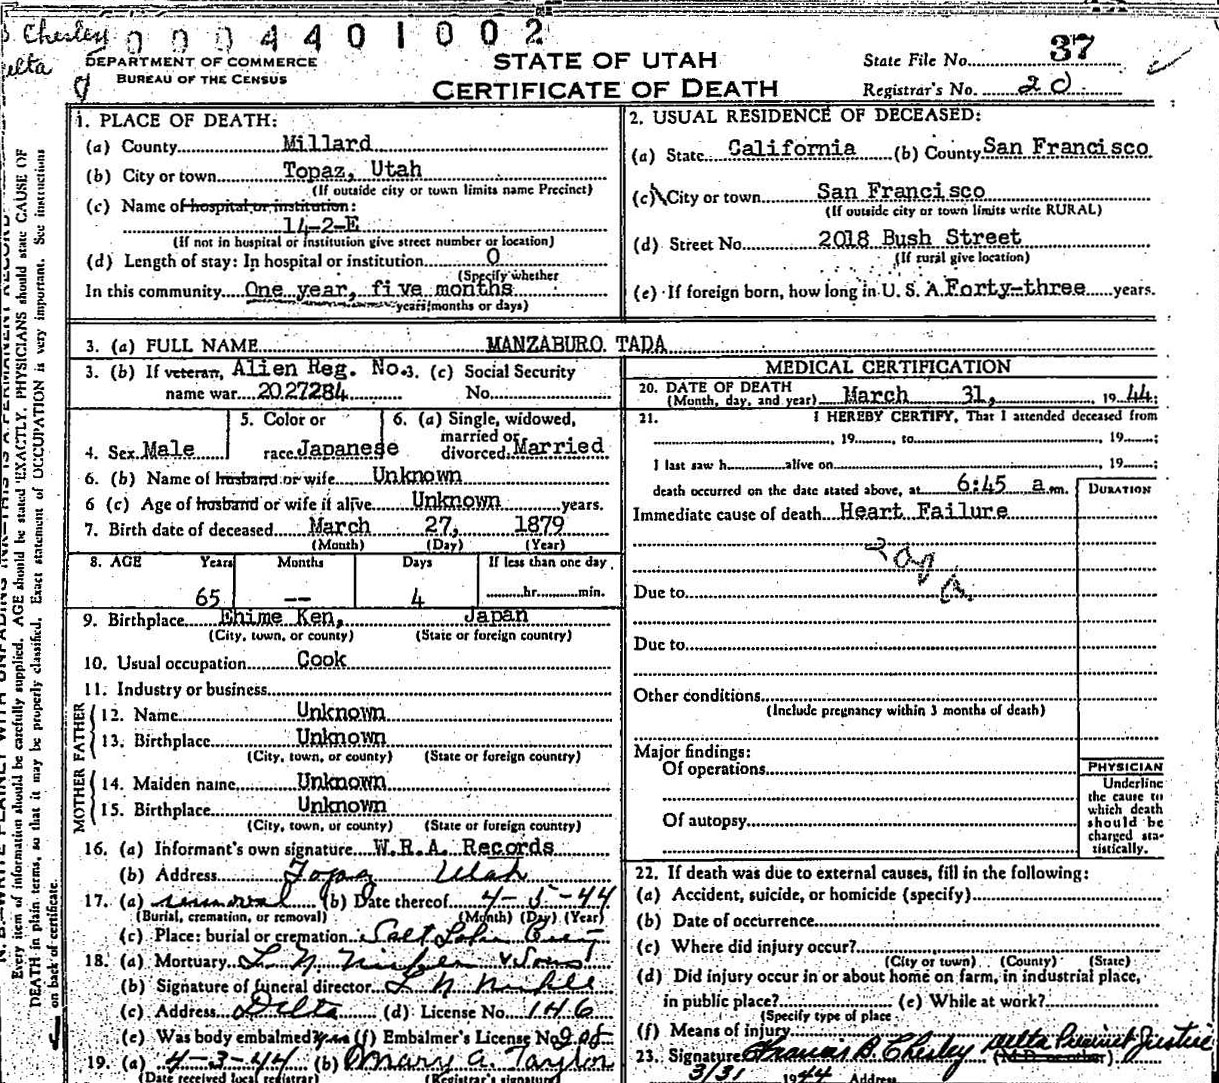 Chesley
0004401002
Delta
DEPARTMENT OF COMMERCE
BUREAU OF THE CENSUS
STATE OF UTAH
CERTIFICATE OF DEATH
State File No. 37
Registrar's No. 20
1. PLACE OF DEATH:
(a) County Millard
(b) City or town Topaz, Utah
(If outside city or town limits name Precinct)
(c) Name of hospital or institution:
14-2-E
(If not in hospital or institution give street number or location)
(d) Length of stay: In hospital or institution 0
(Specify whether
In this community One year, five months
years, months or days)
2. USUAL RESIDENCE OF DECEASED:
(a) State California (b) County San Francisco
(c) City or town San Francisco
(If outside city or town limits write RURAL)
(d) Street No. 2018 Bush Street
(If rural give location)
(e) If foreign born, how long in U. S. A. Forty-three years.
3. (a) FULL NAME MANZABURO TADA
3. (b) If veteran, Alien Reg. No. 3. (c) Social Security
name war 2027284 No.
4. Sex Male
5. Color or
race Japanese
6. (a) Single, widowed,
married or
divorced Married
6. (b) Name of husband or wife Unknown
6 (c) Age of husband or wife if alive Unknown years.
7. Birth date of deceased March 27, 1879
(Month) (Day) (Year)
8. AGE Years Months Days If less than one day
65 -- 4 hr. min.
9. Birthplace Ehime Ken, Japan
(City, town, or county) (State or foreign country)
10. Usual occupation Cook
11. Industry or business
FATHER
12. Name Unknown
13. Birthplace Unknown
(City, town, or county) (State or foreign country)
MOTHER
14. Maiden name Unknown
15. Birthplace Unknown
(City, town, or county) (State or foreign country)
16. (a) Informant's own signature W.R.A. Records
(b) Address Topaz Utah
17. (a) removal (b) Date thereof 4-5-44
(Burial, cremation, or removal) (Month) (Day) (Year)
(c) Place: burial or cremation Salt Lake City
18. (a) Mortuary L N & Sons
(b) Signature of funeral director L N
(c) Address Delta (d) License No. 146
(e) Was body embalmed yes (f) Embalmer's License No. 208
19. (a) 4-3-44 (b) Mary A. Taylor
(Date received local registrar) (Registrar's signature)
MEDICAL CERTIFICATION
20. DATE OF DEATH
(Month, day, and year) March 31, 19 44;
21. I HEREBY CERTIFY, That I attended deceased from
, 19 , to , 19 ;
I last saw h alive on , 19 ;
death occurred on the date stated above, at 6:45 a.m.
DURATION
Immediate cause of death Heart Failure
Due to
Due to
Other conditions
(Include pregnancy within 3 months of death)
Major findings:
Of operations
Of autopsy
PHYSICIAN
Underline
the cause to
which death
should be
charged sta-
tistically.
22. If death was due to external causes, fill in the following:
(a) Accident, suicide, or homicide (specify)
(b) Date of occurrence
(c) Where did injury occur?
(City or town) (County) (State)
(d) Did injury occur in or about home on farm, in industrial place,
in public place? (e) While at work?
(Specify type of place
(f) Means of injury
23. Signature Francis B. Chesley Delta Precinct Justice
(M.D. or other)
3/31 1944 Address
N. B.—WRITE PLAINLY WITH UNFADING INK—THIS IS A PERMANENT RECORD
Every item of information should be carefully supplied. AGE should be stated EXACTLY. PHYSICIANS should state CAUSE OF
DEATH in plain terms, so that it may be properly classified. Exact statement of OCCUPATION is very important. See instructions
on back of certificate.